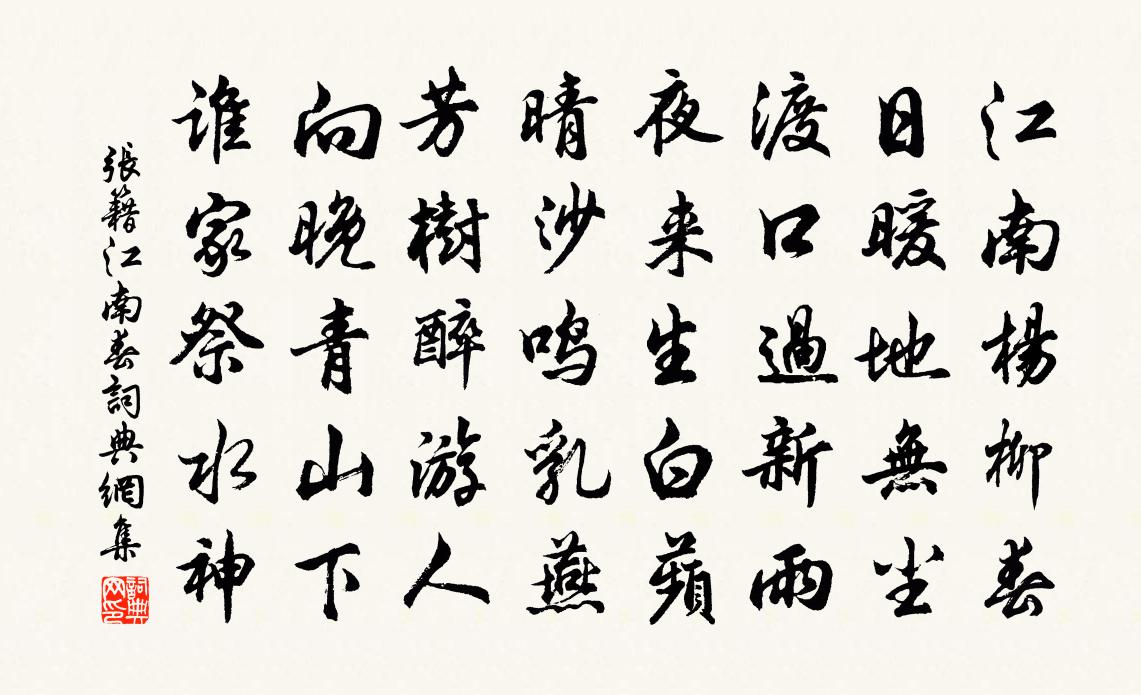 江南楊柳春
日暖地無尘
渡口過新雨
夜来生白蘋
晴沙鸣乳燕
芳樹醉游人
向晚青山下
谁家祭水神
張籍江南春詞典網集
詞典网印